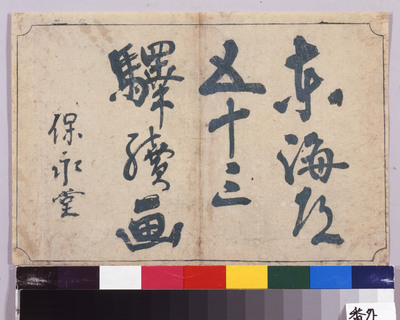 東海道
五十三
驛續画
保永堂
番外